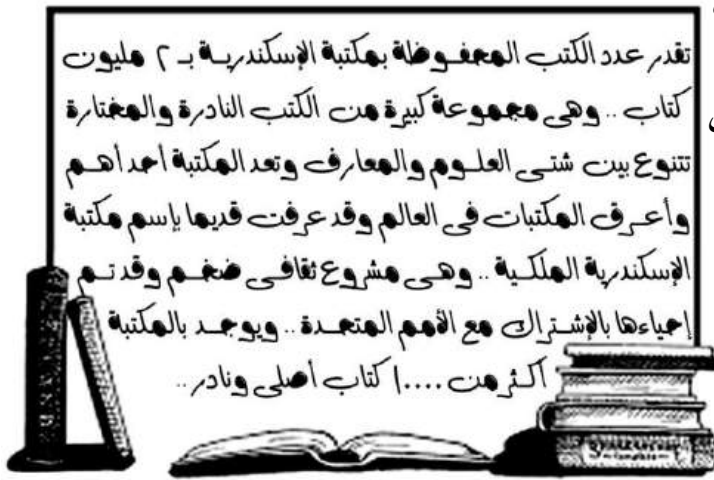 تقدر عدد الكتب المحفوظة بمكتبة الإسكندرية بـ ٢ مليون
كتاب .. وهى مجموعة كبيرة من الكتب النادرة والمختارة
تتنوع بين شتى العلوم والمعارف وتعد المكتبة أحد أهم
وأعرق المكتبات فى العالم وقد عرفت قديما بإسم مكتبة
الإسكندرية الملكية .. وهى مشروع ثقافى ضخم وقد تم
إحياءها بالإشتراك مع الأمم المتحدة .. ويوجد بالمكتبة
أكثر من ١٠٠٠٠ كتاب أصلى ونادر ..